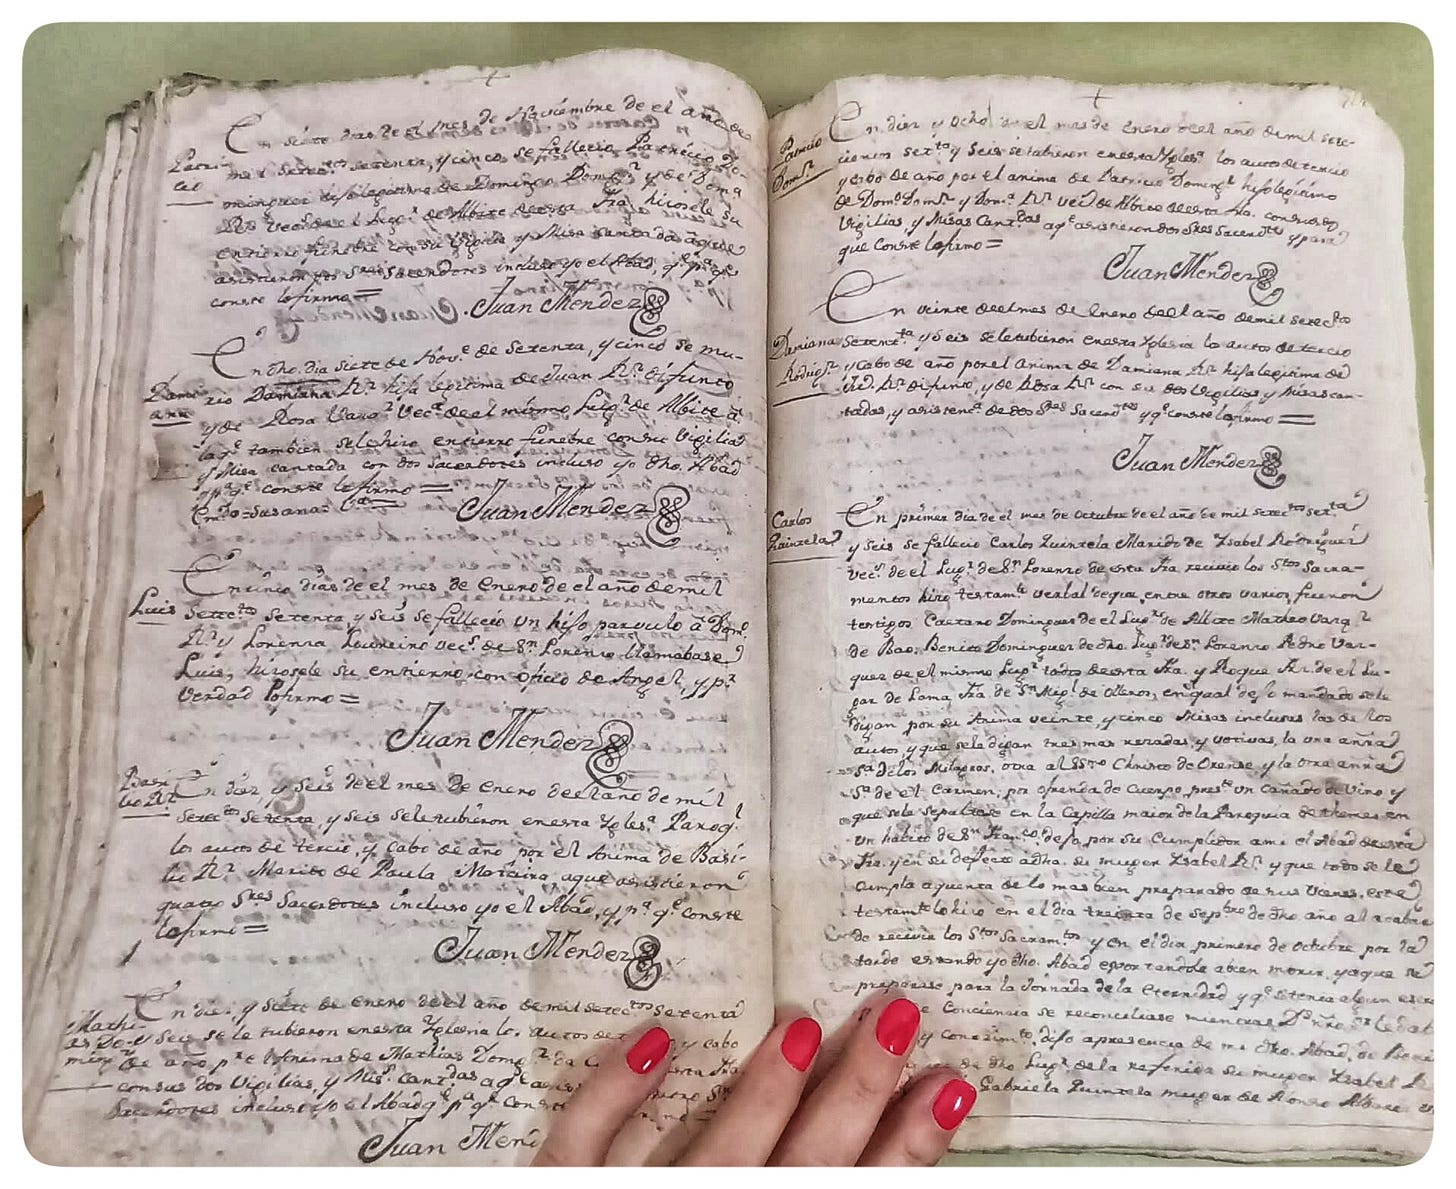 En siete dias de el mes de Noviembre de el año de
Patri-
cio
mil setec.tos setenta, y cinco se fallecio Patricio Do-
minguez hijo legitimo de Domingo Dom.z y de Dom.a
R.z vec.s de el Lug.r de Albite de esta fra. hizosele su
entierro funebre con su Vigilia y Misa cantada a que
asistieron dos S.res Sacerdotes incluso yo el Abad, y p.a q.e
conste lo firmo =
Juan Mendez
En dho. dia siete de Nov.e de setenta, y cinco se mu-
Dami-
ana
rio Damiana R.z hija legitima de Juan R.z difunto
y de Rosa Vazq.z Vec.a de el mismo Lug.r de Albite a
la q.e tambien se le hizo entierro funebre con su Vigilia
y Misa cantada con dos Sacerdotes incluso yo dho. Abad
y p.a q.e conste lo firmo =
Juan Mendez
En cinco dias de el mes de Enero de el año de mil
Luis
setec.tos setenta y seis se fallecio un hijo parvulo a Dom.o
R.z y Lorenza Loureiro vec.s de S.n Lorenzo llamabase
Luis, hizosele su entierro con oficio de Angel, y p.a
verdad lo firmo =
Juan Mendez
Basi-
lio R.z
En diez, y seis de el mes de Enero de el año de mil
setec.tos setenta y seis se le tubieron en esta Yglesi.a Paroq.l
los autos de tercio, y Cabo de año por el Anima de Basi-
lio R.z Marido de Paula Moreira, a que asistieron
quatro S.res Sacerdotes incluso yo el Abad, y p.a q.e conste
lo firmo =
Juan Mendez
En diez, y siete de Enero de el año de mil setec.tos setenta
Mathi-
as Do-
ming.z
y seis se le tubieron en esta Yglesia los autos de y cabo
de año p.r el Anima de Mathias Doming.z
con sus dos Vigilias, y Mis.s cantadas a q.e
Sacerdotes incluso yo el Abad q.e p.a q.e Conste
Juan Mend
Patricio
Dom.z
En diez y ocho de el mes de Enero de el año de mil sete-
cientos set.ta y seis se tubieron en esta Ygles.a los autos de tercio
y cabo de año por el anima de Patricio Doming.z hijo legitimo
de Dom.o Dom.z y Dom.a R.z vec.s de Albite de esta fra. con sus dos
Vigilias, y Misas Cantadas a q.e asistieron dos S.res Sacerd.tes y para
que Conste lo firmo =
Juan Mendez
En veinte de el mes de Enero de el año de mil setec.tos
Damiana
Rodrig.z
setent.ta y seis se le tubieron en esta Yglesia los autos de tercio
y cabo de año por el Anima de Damiana R.z hija legitima de
R.z difunto, y de Rosa R.z con sus dos Vigilias, y Misas can-
tadas, y asistenc.a de dos S.res Sacerdo.tes y q.e conste lo firmo =
Juan Mendez
Carlos
Quintela
En primer dia de el mes de Octubre de el año de mil setec.tos set.ta
y seis se fallecio Carlos Quintela Marido de Ysabel Rodriguez
vec.o de el Lug.r de S.n Lorenzo de esta fra. recivio los S.tos Sacra-
mentos hizo testam.to verbal de que, entre otros varios, fueron
testigos Caetano Dominguez de el Lug.r de Albite Matheo Vazq.z
de Bao, Benito Dominguez de dho. Lug.r de S.n Lorenzo Pedro Vaz-
quez de el mismo Lug.r todos de esta fra. y Roque Fr.z de el Lu-
gar de Lama, fra. de S.n Mig.l de Olleros, en el qual dejo mandado se le
digan por su Anima veinte, y cinco Misas inclusas las de los
autos, y que se le digan tres mas rezadas, y votivas, la una a nra
S.a de los Milagros, otra al S.sto Christo de Orense y la otra a nra
S.a de el Carmen; por ofrenda de Cuerpo pres.te un Cañado de vino, y
que se le sepultase en la Capilla maior de la Paroquia de themes en
un habito de S.n Fran.co, dejo por su Cumplidor a mi el Abad de esta
fra. y en su defecto a dha. su muger Ysabel R.z y que todo se le
Cumpla a quenta de lo mas bien preparado de sus vienes, este
testam.to lo hizo en el dia treinta de Sep.bre de dho año al acabar
de recivir los S.tos Sacram.tos y en el dia primero de Octubre por la
tarde estando yo dho. Abad exortandole a bien morir, y a que se
preparase para la Jornada de la Eternidad y q.e si tenia algun escru
de Conciencia se reconciliase mientras D.s nro S.r le dab
y conozim.to, dijo a presencia de mi dho. Abad, de Beni
de dho. Lug.r de la referida su muger Ysabel R.
Gabriela Quintela muger de Alonso Albarez